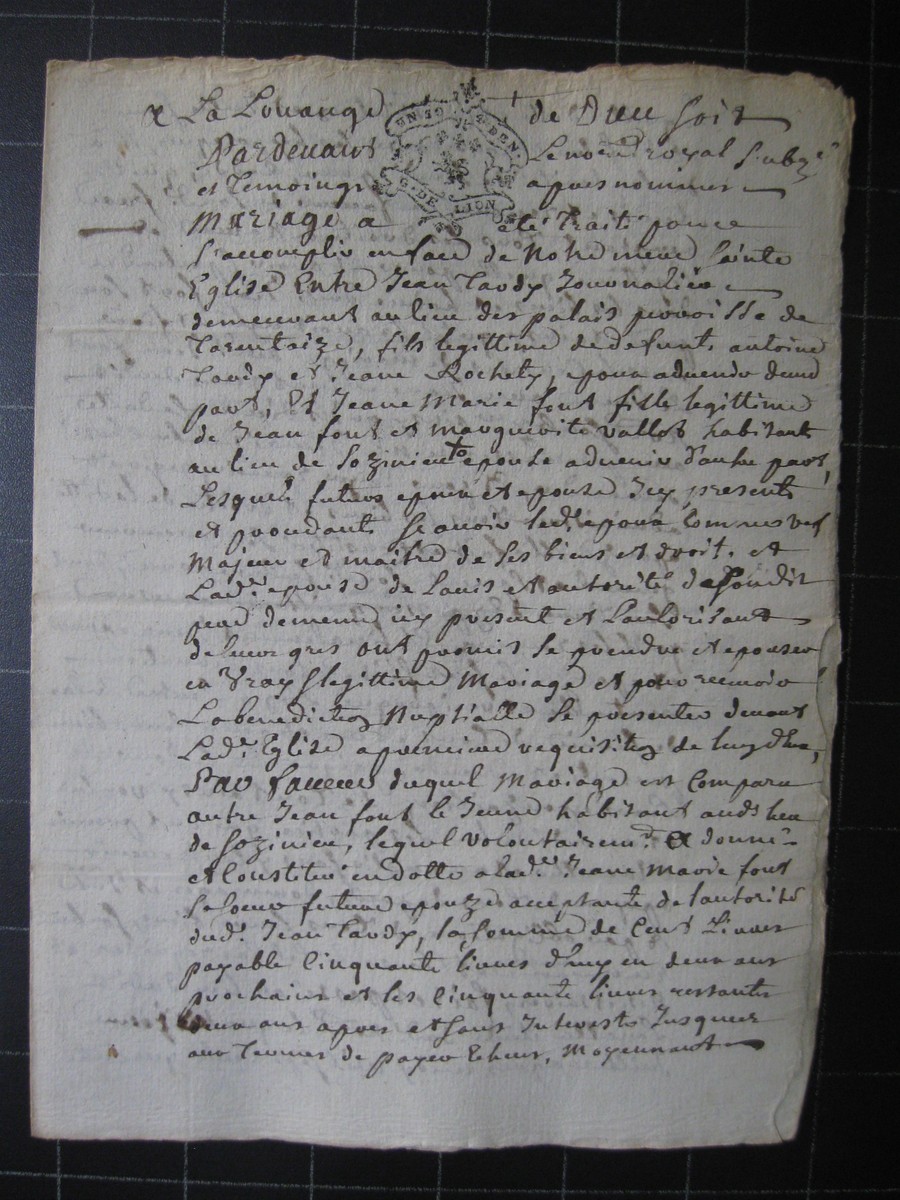 La Louange de Dieu soit
Pardevant Le no.re royal soubz.né
et Temoingt apres nommer
Mariage a eté Traité pour ce
S'accomplir en face de Notre mere Sainte
Eglise Entre Jean Tardy Journalier
demeurant au lieu des palais parroisse de
Tarentaize, fils legittime de defunts antoine
Tardy et Jeane Rochety, epoux advenir d'une
part, Et Jeane Marie font fille legittime
de Jean font et marguerite vallot habitant
au lieu de Sozinieu epouse advenir d'autre part,
Lesquels futurs epoux et epouse Icy presents
et procedants Scavoir led. epoux comme
Majeur et maitre de ses biens et droit, et
Lad. epouse de L'avis et autorité de sondit
pere de meme icy present et L'authorisant
de leurs gres ont promis se prendre et epouser
en Vray & legittime Mariage et pour recevoir
La benediction Nuptialle Se presenter devant
Lad. Eglise a premiere requisition de
Par faveur duquel Mariage est Comparu
autre Jean font le Jeune habitant aud. lieu
de Sozinieu, lequel volontairem.t a donné
et Constitué en dotte a lad. Jeane marie font
Sa Soeur future epouze acceptante de l'autorité
dud. Jean Tardy, la Somme de Cent Livres
payable Cinquante livres d'huy en deux ans
prochains et les Cinquante livres restantes
deux ans apres et sans Interests Jusques
aux Termes de payer Echeus, Moyennant
GEN
DE LION